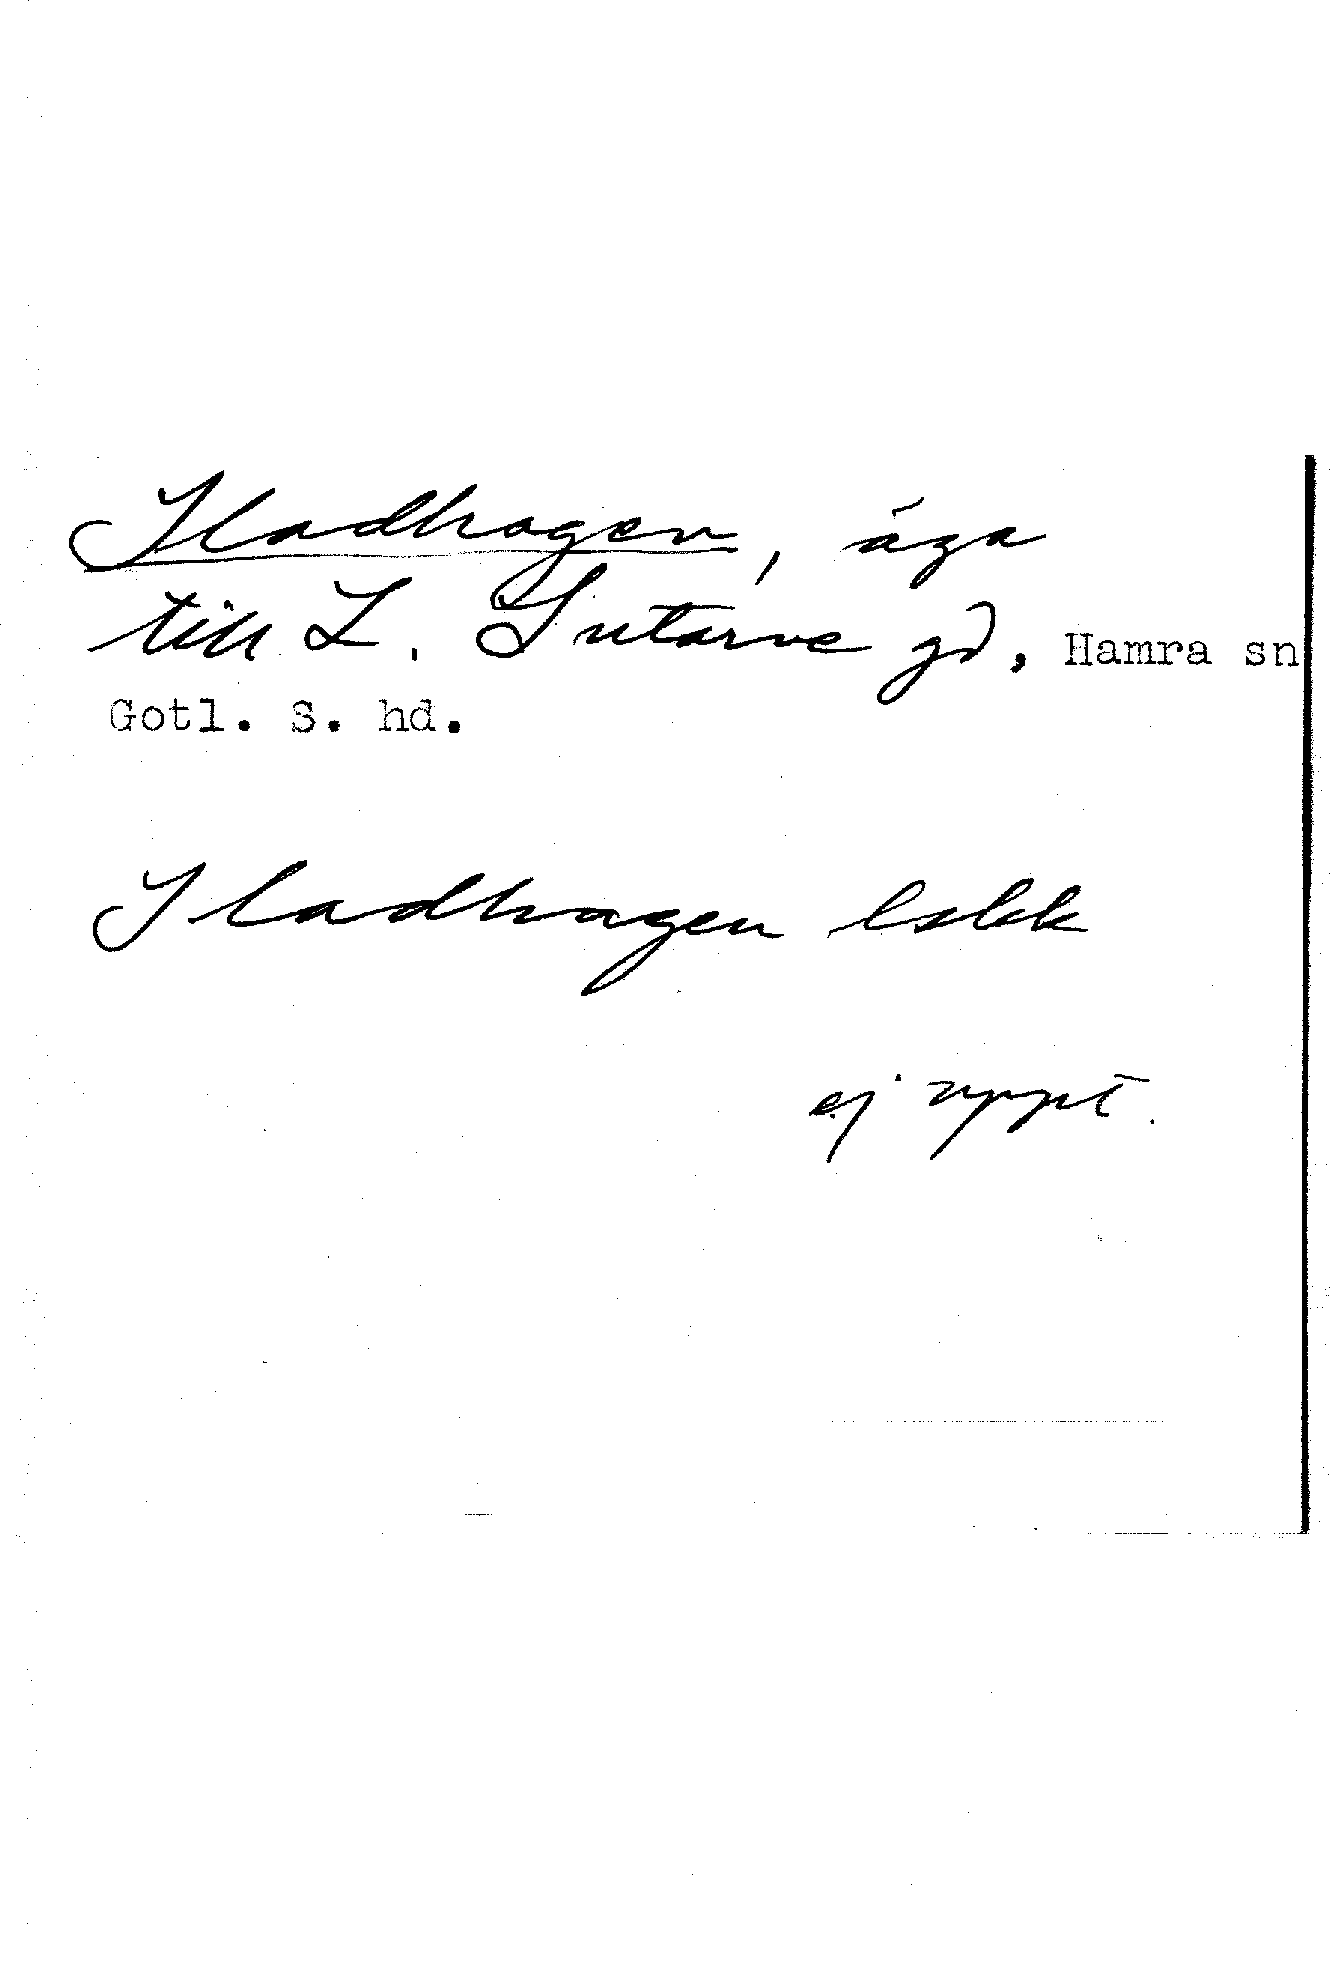 Sladhagen, äga
till L. Sutarve gd, Hamra sn
Gotl. S. hd.
Sladhagen lskk
ej uppt.